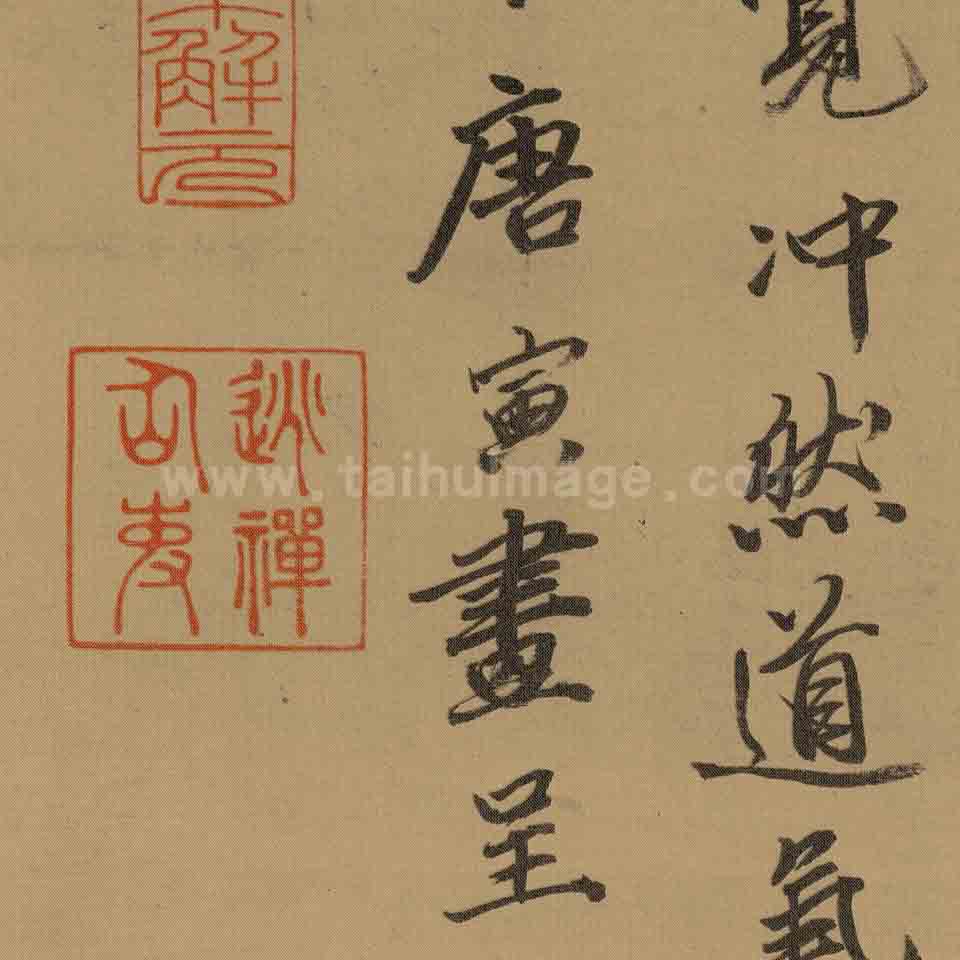 覓冲然道氣
唐寅畫呈
解元
逃禪仙吏
www.taihuimage.com